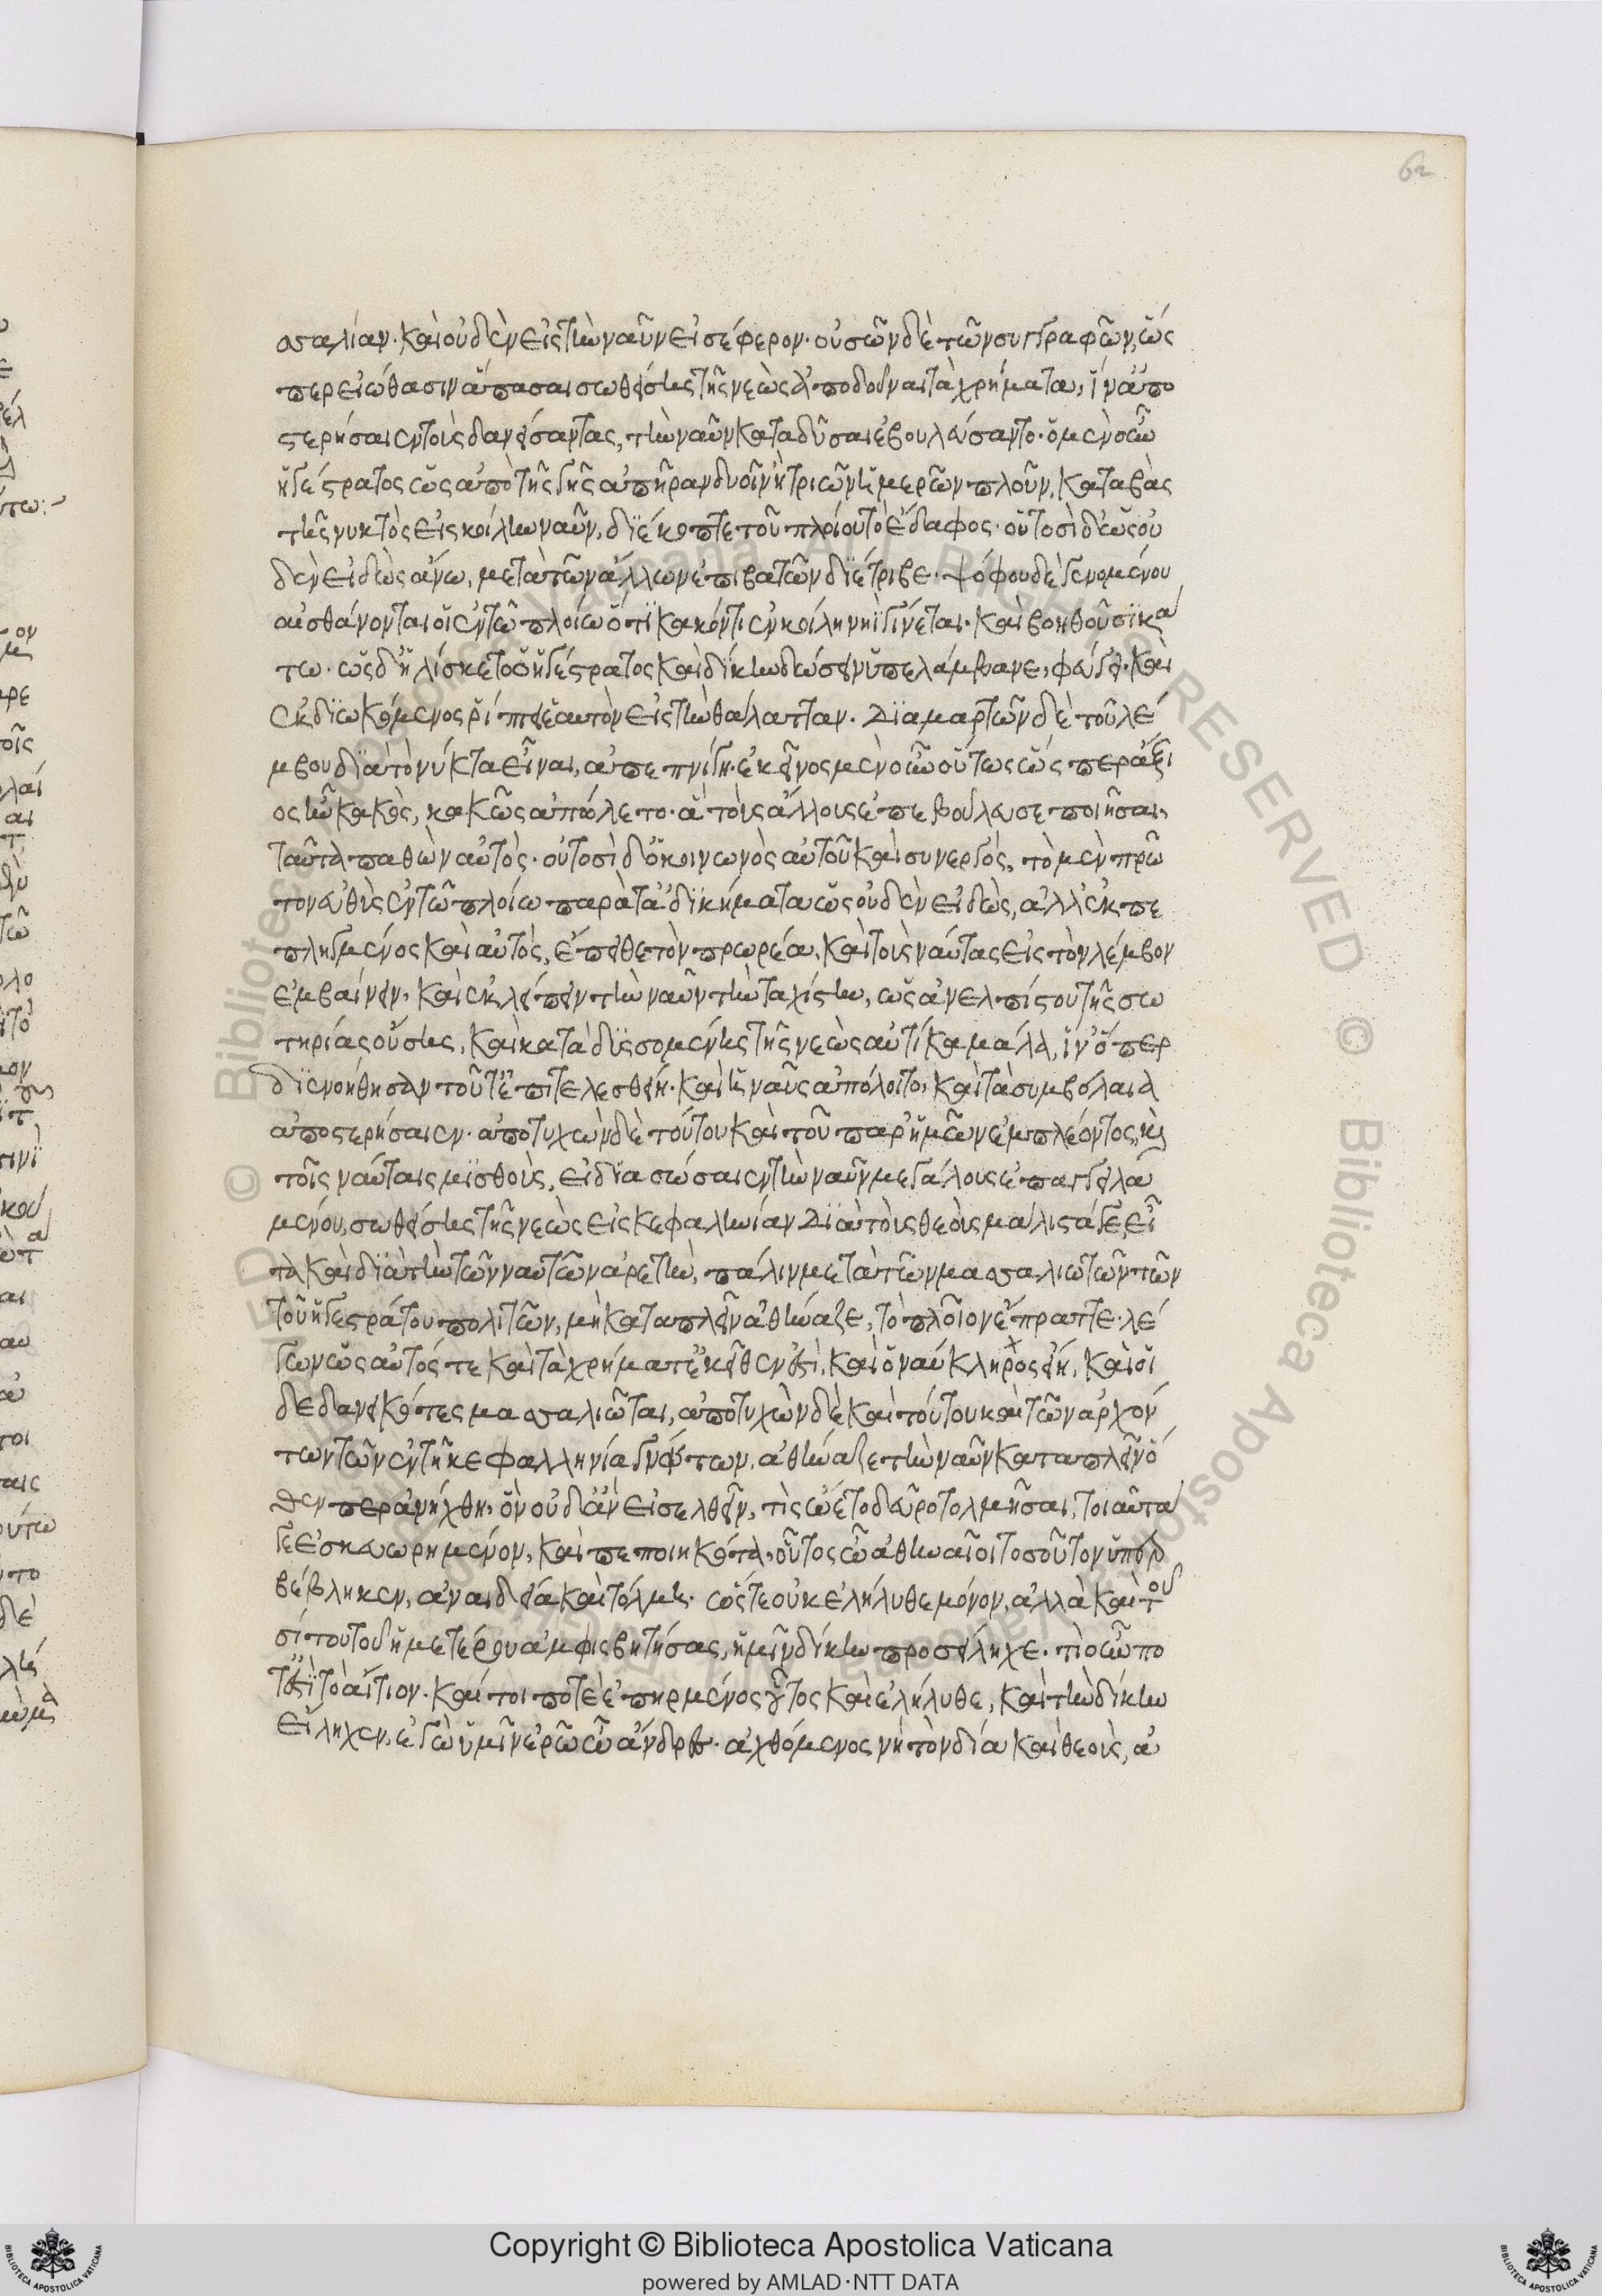 62
σσαλίαν. καὶ οὐδὲν εἰς τὴν ναῦν εἰσέφερον. οὐσῶν δὲ τῶν συγγραφῶν, ὥς
περ εἰώθασιν ἅπασαι σωθείσης τῆς νεὼς ἀποδοῦναι τὰ χρήματα, ἵν' ἀπο
στερήσαιεν τοὺς δανείσαντας, τὴν ναῦν καταδῦσαι ἐβουλεύσαντο. ὁ μὲν οὖν
ἡγέστρατος ὡς ἀπὸ τῆς γῆς ἀπῆραν δυοῖν ἢ τριῶν ἡμερῶν πλοῦν, καταβὰς
τῆς νυκτὸς εἰς κοίλην ναῦν, διέκοπτε τοῦ πλοίου τὸ ἔδαφος. οὑτοσὶ δ' ὡς οὐ
δὲν εἰδὼς ἄνω, μετὰ τῶν ἄλλων ἐπιβατῶν διέτριβε. ψόφου δὲ γενομένου
αἰσθάνονται οἱ ἐν τῷ πλοίῳ ὅτι κακόν τι ἐν κοίλῃ νηῒ γίνεται. καὶ βοηθοῦσι κά
τω. ὡς δ' ἡλίσκετο ὁ ἡγέστρατος καὶ δίκην δώσειν ὑπελάμβανε, φεύγει. καὶ
ἐκδιωκόμενος ῥίπτει ἑαυτὸν εἰς τὴν θάλατταν. Διαμαρτὼν δὲ τοῦ λέ
μβου διὰ τὸ νύκτα εἶναι, ἀπεπνίγη. ἐκεῖνος μὲν οὖν οὕτως ὥσπερ ἄξι
ος ἦν κακὸς, κακῶς ἀπώλετο. ἃ τοὺς ἄλλους ἐπεβούλευσε ποιῆσαι,
ταῦτα παθὼν αὐτός. οὑτοσὶ δ' ὁ κοινωνὸς αὐτοῦ καὶ συνεργὸς, τὸ μὲν πρῶ
τον εὐθὺς ἐν τῷ πλοίῳ παρὰ τἀδικήματα ὡς οὐδὲν εἰδὼς, ἀλλ' ἐκπε
πληγμένος καὶ αὐτὸς, ἔπειθε τὸν πρωρέα, καὶ τοὺς ναύτας εἰς τὸν λέμβον
ἐμβαίνειν, καὶ ἐκλείπειν τὴν ναῦν τὴν ταχίστην, ὡς ἀνελπίστου τῆς σω
τηρίας οὔσης, καὶ καταδυσομένης τῆς νεὼς αὐτίκα μάλα, ἵν' ὅπερ
διενοήθησαν τοῦτ' ἐπιτελεσθείη. καὶ ἡ ναῦς ἀπόλοιτο, καὶ τὰ συμβόλαια
ἀποστερήσαιεν. ἀποτυχὼν δὲ τούτου καὶ τοῦ παρ' ἡμῶν ἐμπλέοντος, καὶ
τοῖς ναύταις μισθοὺς, εἰ διασώσαιεν τὴν ναῦν μεγάλους ἐπαγγειλα
μένου, σωθείσης τῆς νεὼς εἰς κεφαληνίαν Διὰ τοὺς θεοὺς μάλιστά γε, εἶ
τα καὶ διὰ τὴν τῶν ναυτῶν ἀρετὴν, πάλιν μετὰ τῶν μασσαλιωτῶν τῶν
τοῦ ἡγεστράτου πολιτῶν, μὴ καταπλεῖν ἀθήναζε, τὸ πλοῖον ἔπραττε. λέ
γων ὡς αὐτός τε καὶ τὰ χρήματ' ἐκεῖθέν ἐστι, καὶ ὁ ναύκληρος εἴη, καὶ οἱ
δεδανεικότες μασσαλιῶται, ἀποτυχὼν δὲ καὶ τούτου καὶ τῶν ἀρχόν
των τῶν ἐν τῇ κεφαλληνίᾳ γνόντων, ἀθήναζε τὴν ναῦν καταπλεῖν ὅ
θεν περ ἀνήχθη, ὃν οὐδ' ἂν εἰσελθεῖν, τὶς ᾤετο δεῦρο τολμῆσαι, τοιαῦτά
γε ἐσκευωρημένον, καὶ πεποιηκότα, οὗτος ὦ ἀθηναῖοι τοσοῦτον ὑπερ
βέβληκεν, ἀναιδείᾳ καὶ τόλμῃ. ὥστε οὐκ ἐλήλυθε μόνον, ἀλλὰ καὶ τοῦ
σίτου τοῦ ἡμετέρου ἀμφισβητήσας, ἡμῖν δίκην προσείληχε. τὶ οὖν πο
τ' ἐστὶ τὸ αἴτιον. καί τοι ποτὲ ἐπηρμένος οὗτος καὶ ἐλήλυθε, καὶ τὴν δίκην
εἴληχεν, ἐγὼ ὑμῖν ἐρῶ ὦ ἄνδρες. ἀχθόμενος νὴ τὸν δία καὶ θεοὺς, ἀ
Copyright © Biblioteca Apostolica Vaticana
powered by AMLAD·NTT DATA